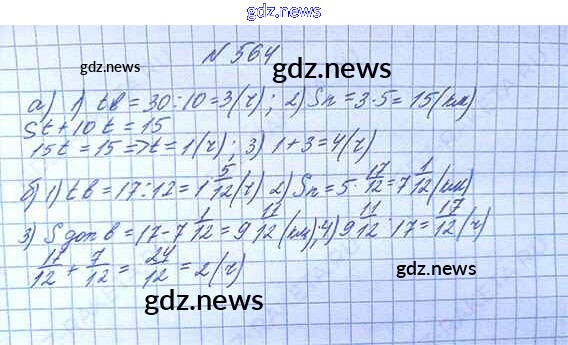 gdz.ru
N 564
gdz.ru
gdz.ru
а) 1) tв = 30:10 = 3(ч); 2) Sп = 3·5 = 15(км)
5t + 10t = 15
15t = 15 => t = 1(ч); 3) 1+3 = 4(ч)
б) 1) tв = 17:12 = 1 5/12 (ч) 2) Sп = 5 · 17/12 = 7 1/12 (км)
3) S доп в = 17 - 7 1/12 = 9 11/12 (км); 4) 9 11/12 : 17 = 17/12 (ч)
17/12 + 7/12 = 24/12 = 2(ч)
gdz.ru
gdz.ru